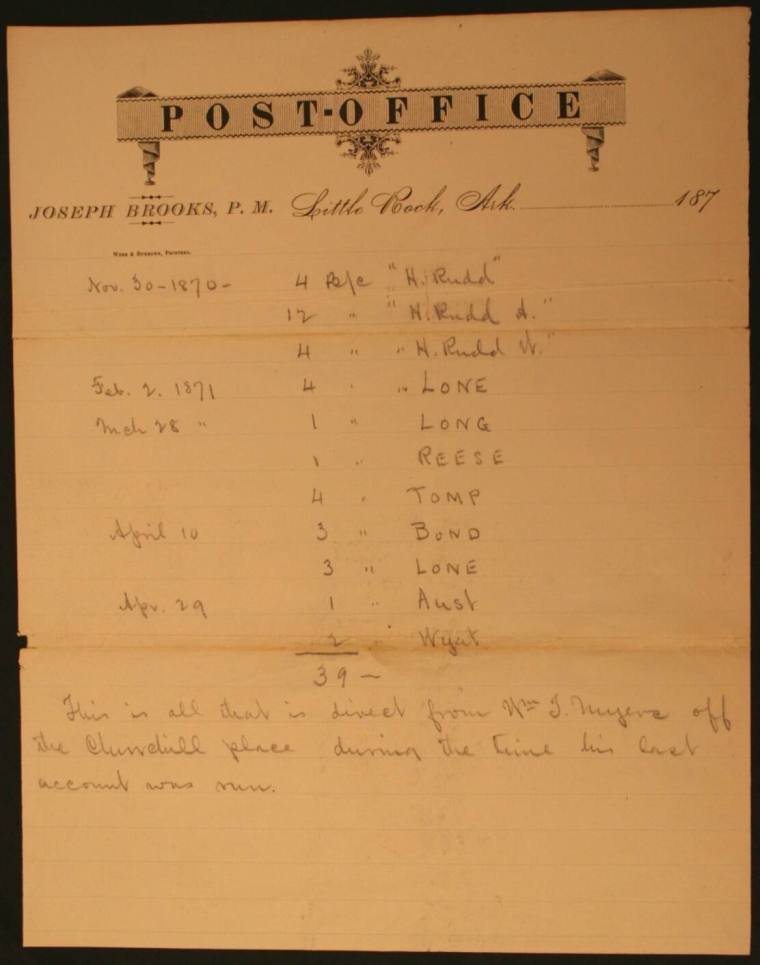 POST-OFFICE
JOSEPH BROOKS, P. M. Little Rock, Ark. 187
WEBB & BURROWS, PRINTERS.
Nov. 30-1870- 4 B/c "H. Rudd"
12 " "H. Rudd A."
4 " "H. Rudd W."
Feb. 2. 1871 4 " " LONE
Mch 28 " 1 " LONG
1 " REESE
4 " TOMP
April 10 3 " BOND
3 " LONE
Apr. 29 1 " Aust
2 " Wyat
39 -
This is all that is direct from Wm J. Myers off
the Churchill place during the time his last
account was run.